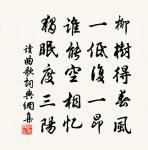 柳樹得春風
一低復一昂
誰能空相憶
獨眠度三陽
讀曲歌詞典網集